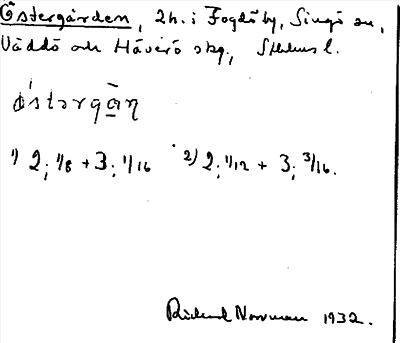 Östergården, 2h. i Fogdö by, Singö sn,
Väddö och Häverö skg, Sthlms l.
østərgɑ̄ṇ
1) 2; 1/8 + 3; 1/16 2) 2; 1/12 + 3; 3/16.
Rickard Norrman 1932.